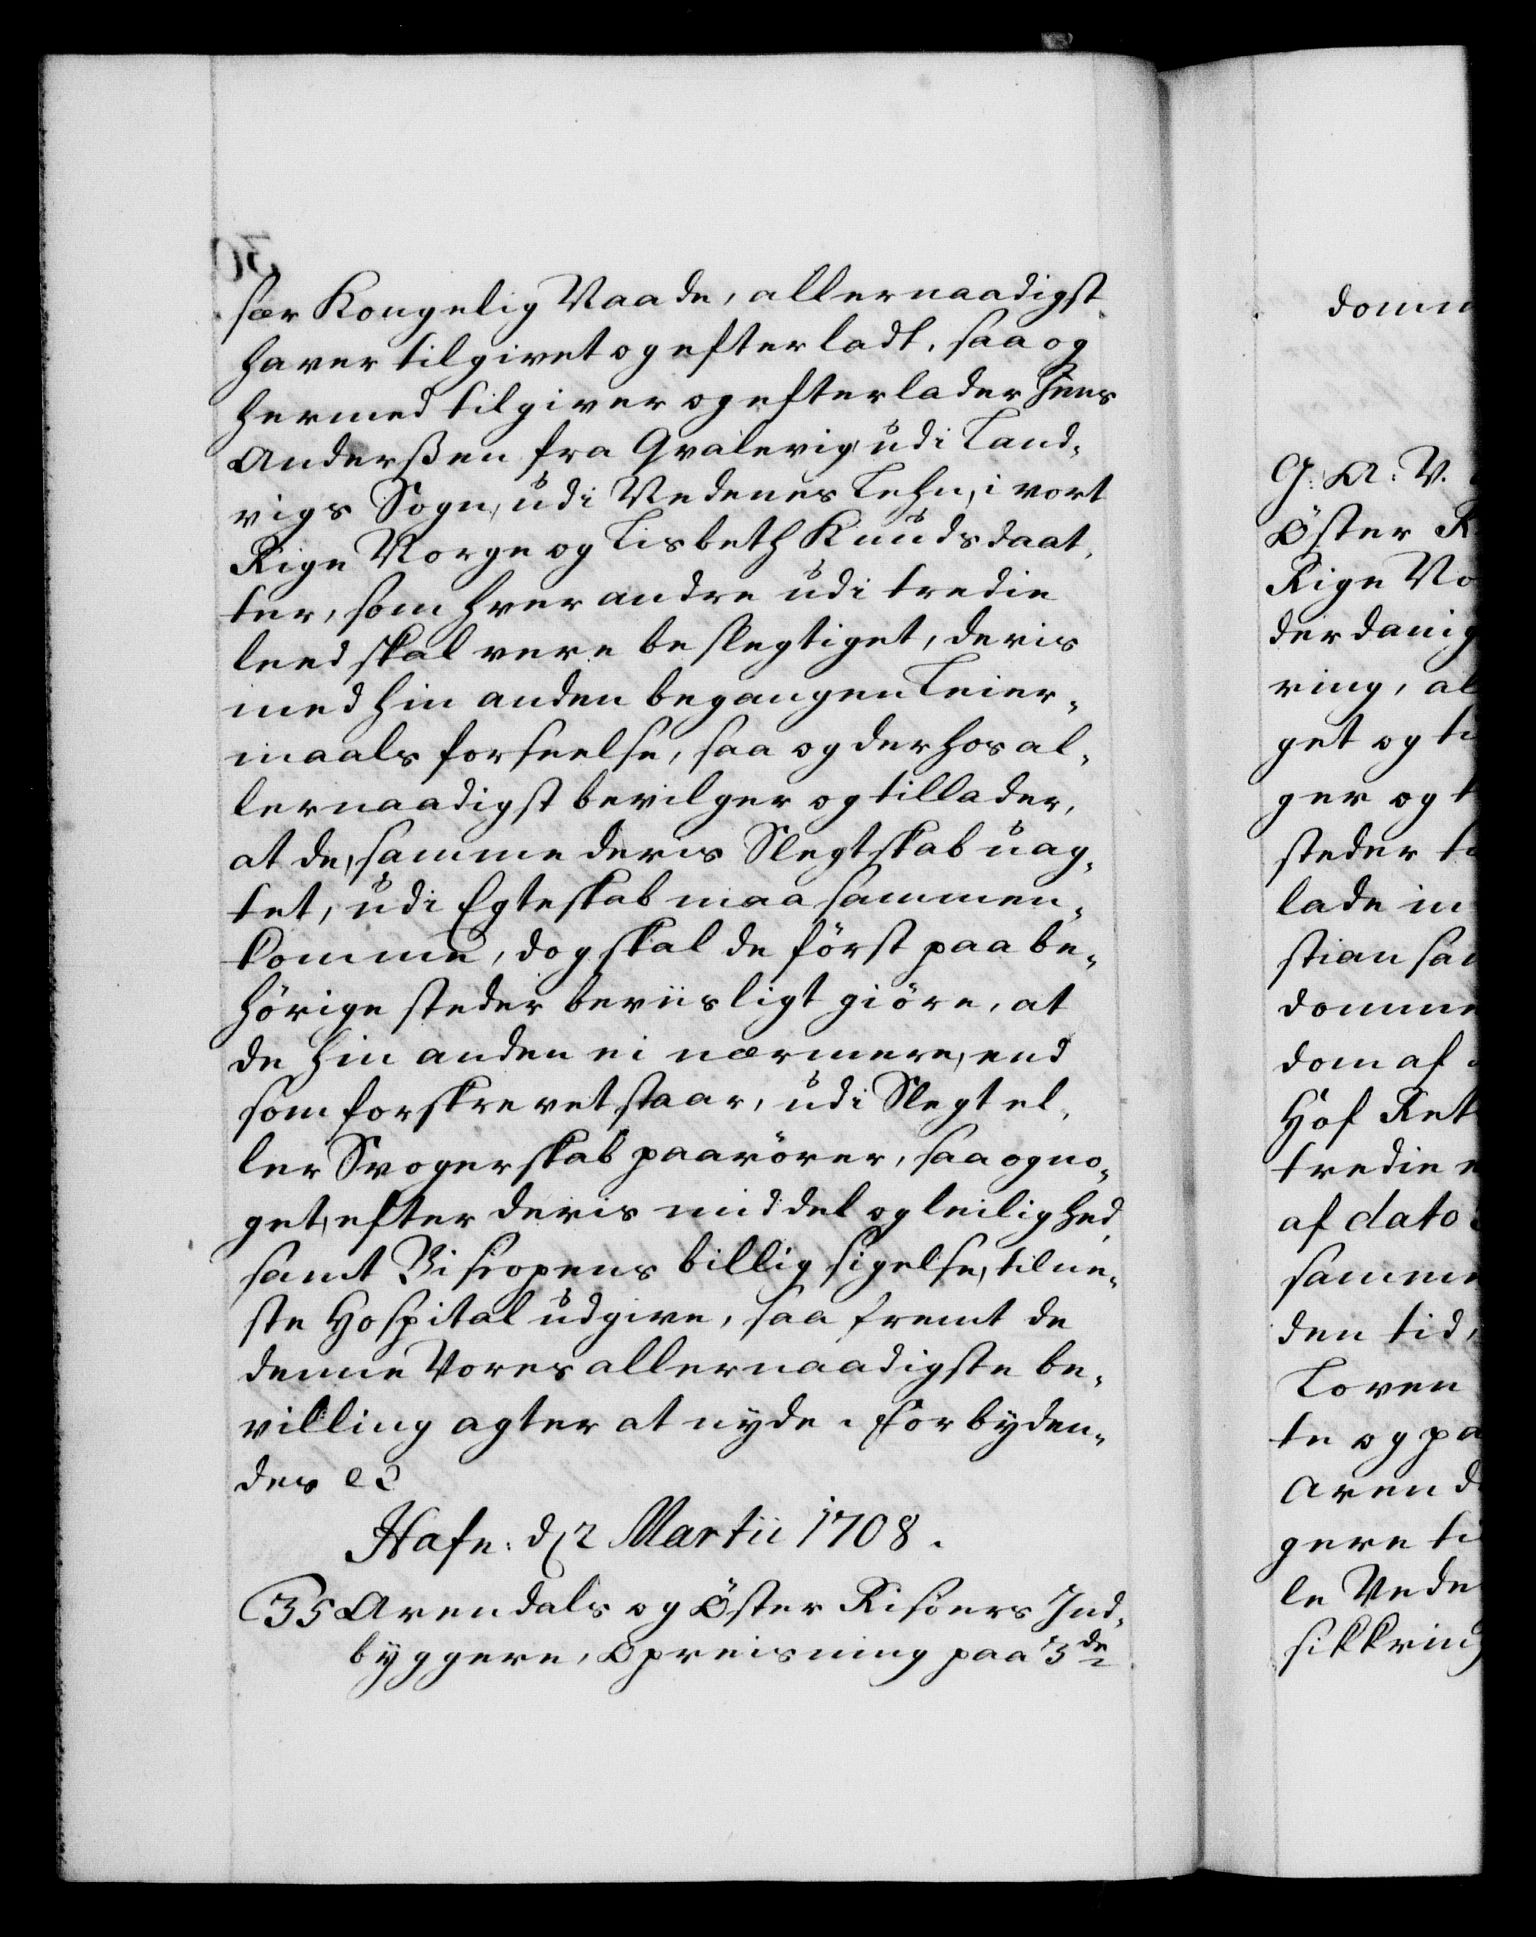 sær Kongelig Naade, allernaadigst
haver tilgivet og efterladt, saa og
hermed tilgiver og efterlader Jens
Anderßen fra Qvalevig udi Land-
vigs Sogn, udi Nedenes Lehn, i vort
Rige Norge og Lisbeth Knudsdaat-
ter, som hverandre udi tredie
leed skal vere beslegtiget, deris
med hin anden begangen Leier-
maals forseelse, saa og derhos al-
lernaadigst bevilger og tillader,
at de, samme deris Slegtskab uag-
tet, udi Egteskab maa sammen-
komme, dog skal de först paa be-
hörige steder beviisligt giöre, at
de hin anden ei nærmere, end
som forskrevet staar, udi Slegt el-
ler Svogerskab paarörer, saa og no-
get, efter deris middel og leilighed,
samt Biscopens billig sigelse, til ne-
ste Hospital udgive, saa fremt de
denne Vores allernaadigste be-
villing agter at nyde. Forbyden-
des etc
Hafn: d. 2 Martii 1708.
35 Arendals og Öster Risöers Ind-
byggere, Opreisning paa 3de
domm
G: A: V.
Öster R
Rige No
derdanig
ring, al
get og ti
ger og t
steder
lade in
stian
domme
dom af
Hof Ret
tredie
af dato
samme
den tid,
Loven
te og pa
Arend
gere ti
le Vede
sikkring